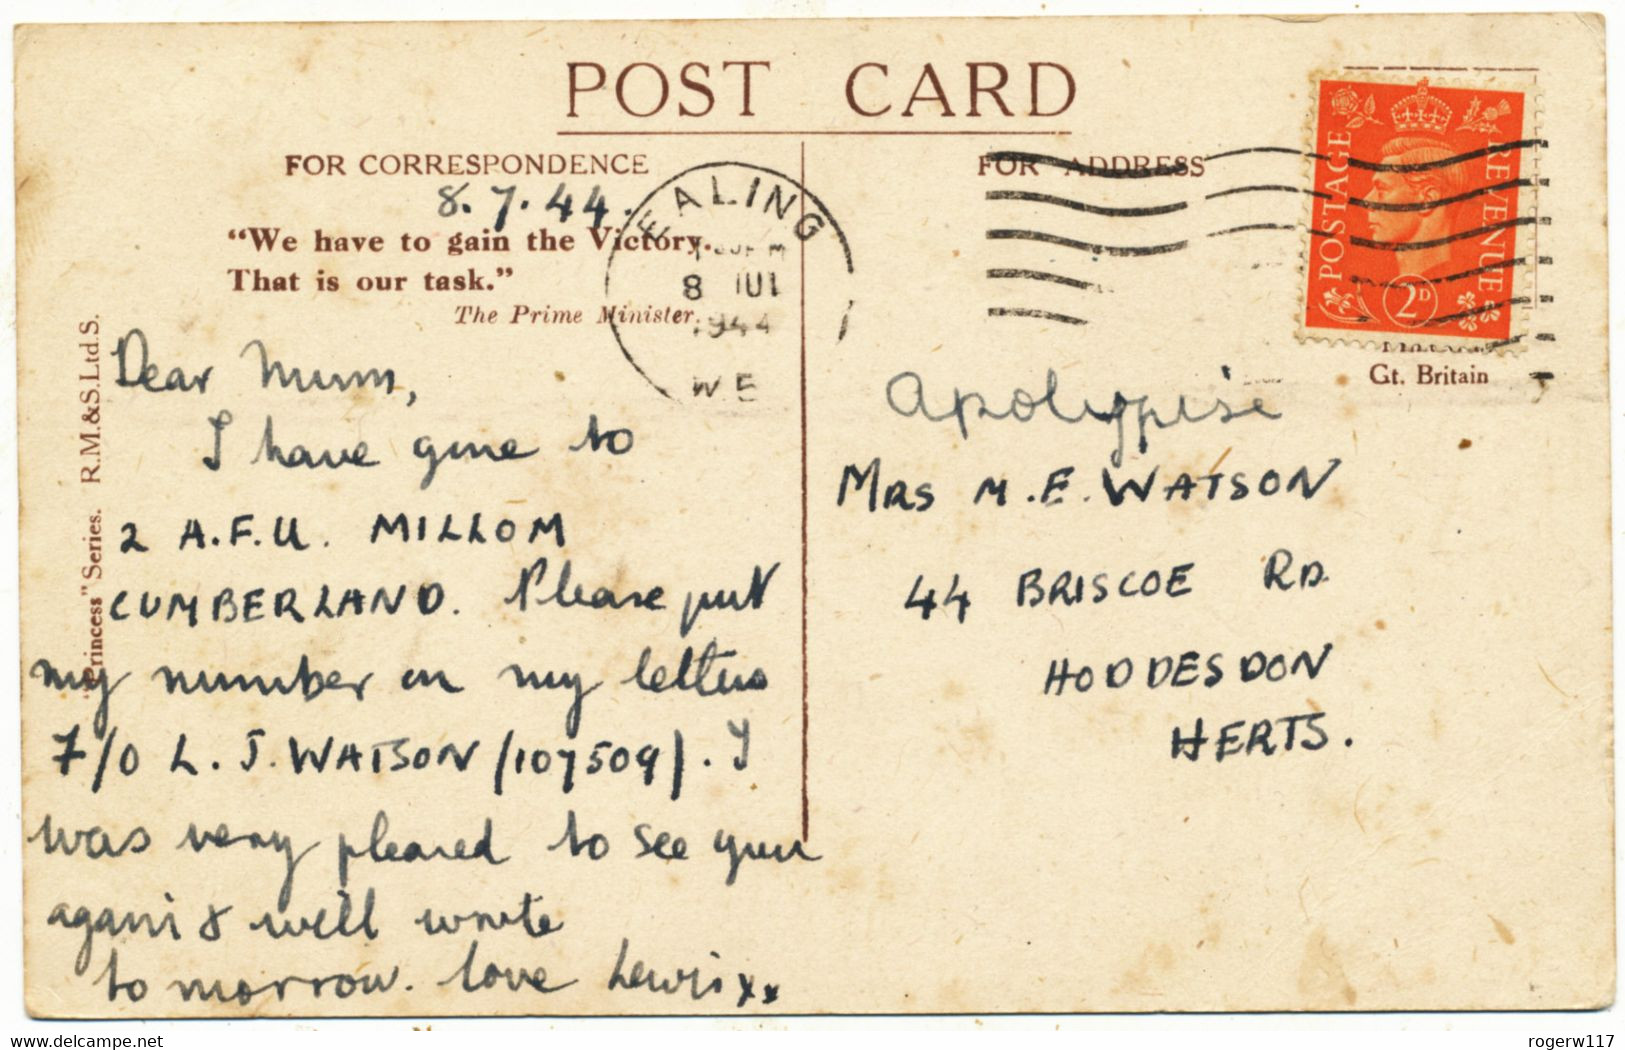 POST CARD
FOR CORRESPONDENCE
8.7.44.
"We have to gain the Victory.
That is our task."
The Prime Minister.
"Princess" Series. R.M.&S.Ltd.S.
Dear Mum,
I have gone to
2 A.F.U. MILLOM
CUMBERLAND. Please put
my number on my letters
F/O L. J. WATSON (107509). I
was very pleased to see you
again & will write
tomorrow. love Lewis xx
EALING
8 JUL
1944
W.5
FOR ADDRESS
POSTAGE
REVENUE
2D
Gt. Britain
MRS M.E. WATSON
44 BRISCOE RD
HODDESDON
HERTS.
delcampe.net
rogerw117